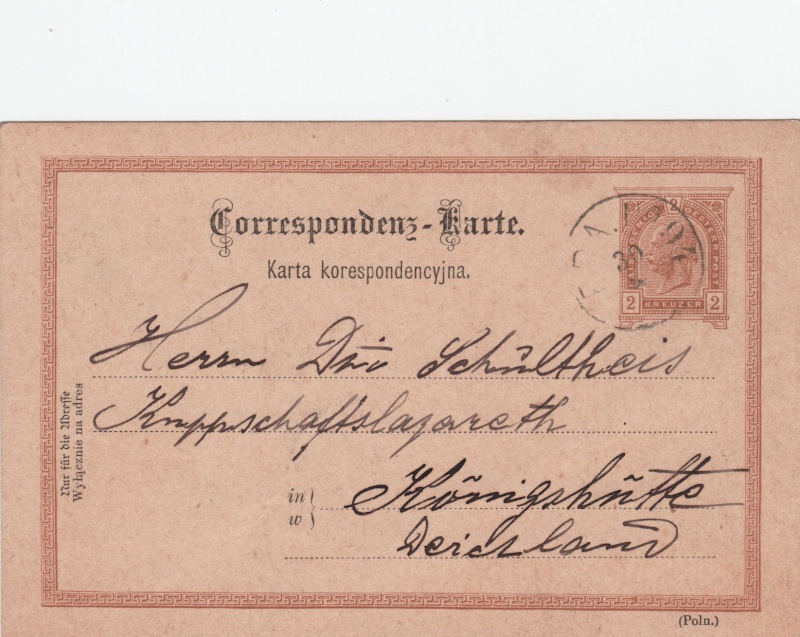 Correspondenz-Karte.
Karta korespondencyjna.
2
2 KREUZER 2
30
Herrn Schultheis
Knppschaftslazareth
in
w
Königshütte
Deutschland
Nur für die Adresse
Wyłącznie na adres
(Poln.)